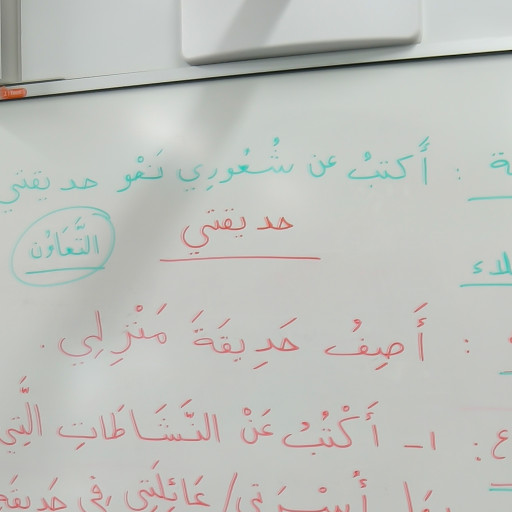 ـة : أَكتبُ عن شُعُورِي نَحْو حديقتي
حديقتي
التَّعَاوُن
ـلاء
: أَصِفُ حَدِيقَةَ مَنْزِلِي .
ع : ١- أَكْتُبُ عَنْ النَّشَاطَاتِ الَّتِي
أُسْرَتِي / عَائِلَتِي فِي حَدِيقَة